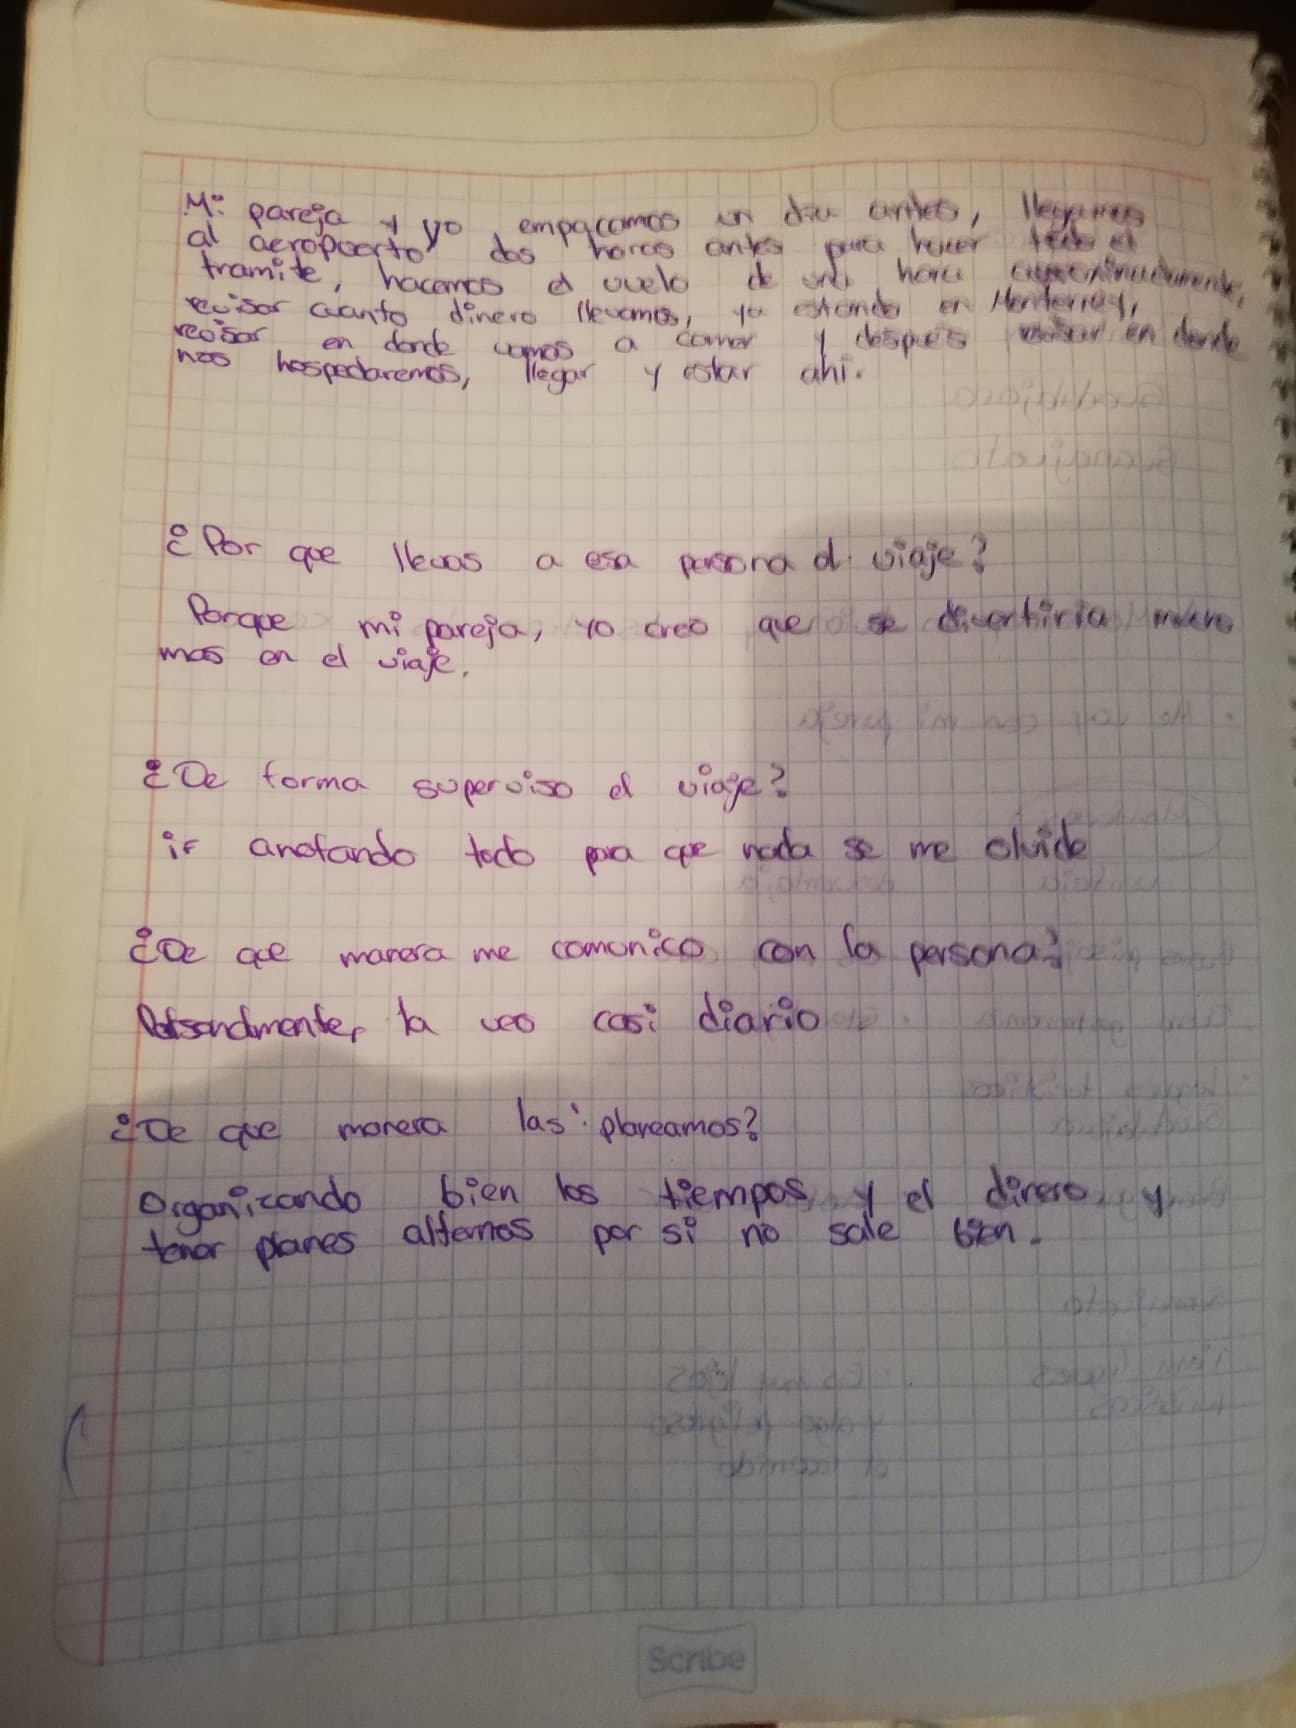 Mi pareja y yo empacamos un dia antes, llegamos
al aeropuerto dos horas antes para hacer todo el
tramite, hacemos el vuelo de una hora aproximadamente,
revisar cuanto dinero llevamos, ya estando en Monterrey,
revisar en donde vamos a comer y despues revisar en donde
nos hospedaremos, llegar y estar ahi.
¿Por que llevas a esa persona al viaje?
Porque mi pareja, yo creo que se divertiria mucho
mas en el viaje.
¿De forma superviso el viaje?
ir anotando todo para que nada se me olvide
¿De que manera me comunico con la persona?
Personalmente, la veo casi diario
¿De que manera las planeamos?
Organizando bien los tiempos y el dinero y
tener planes alternos por si no sale bien.
Scribe